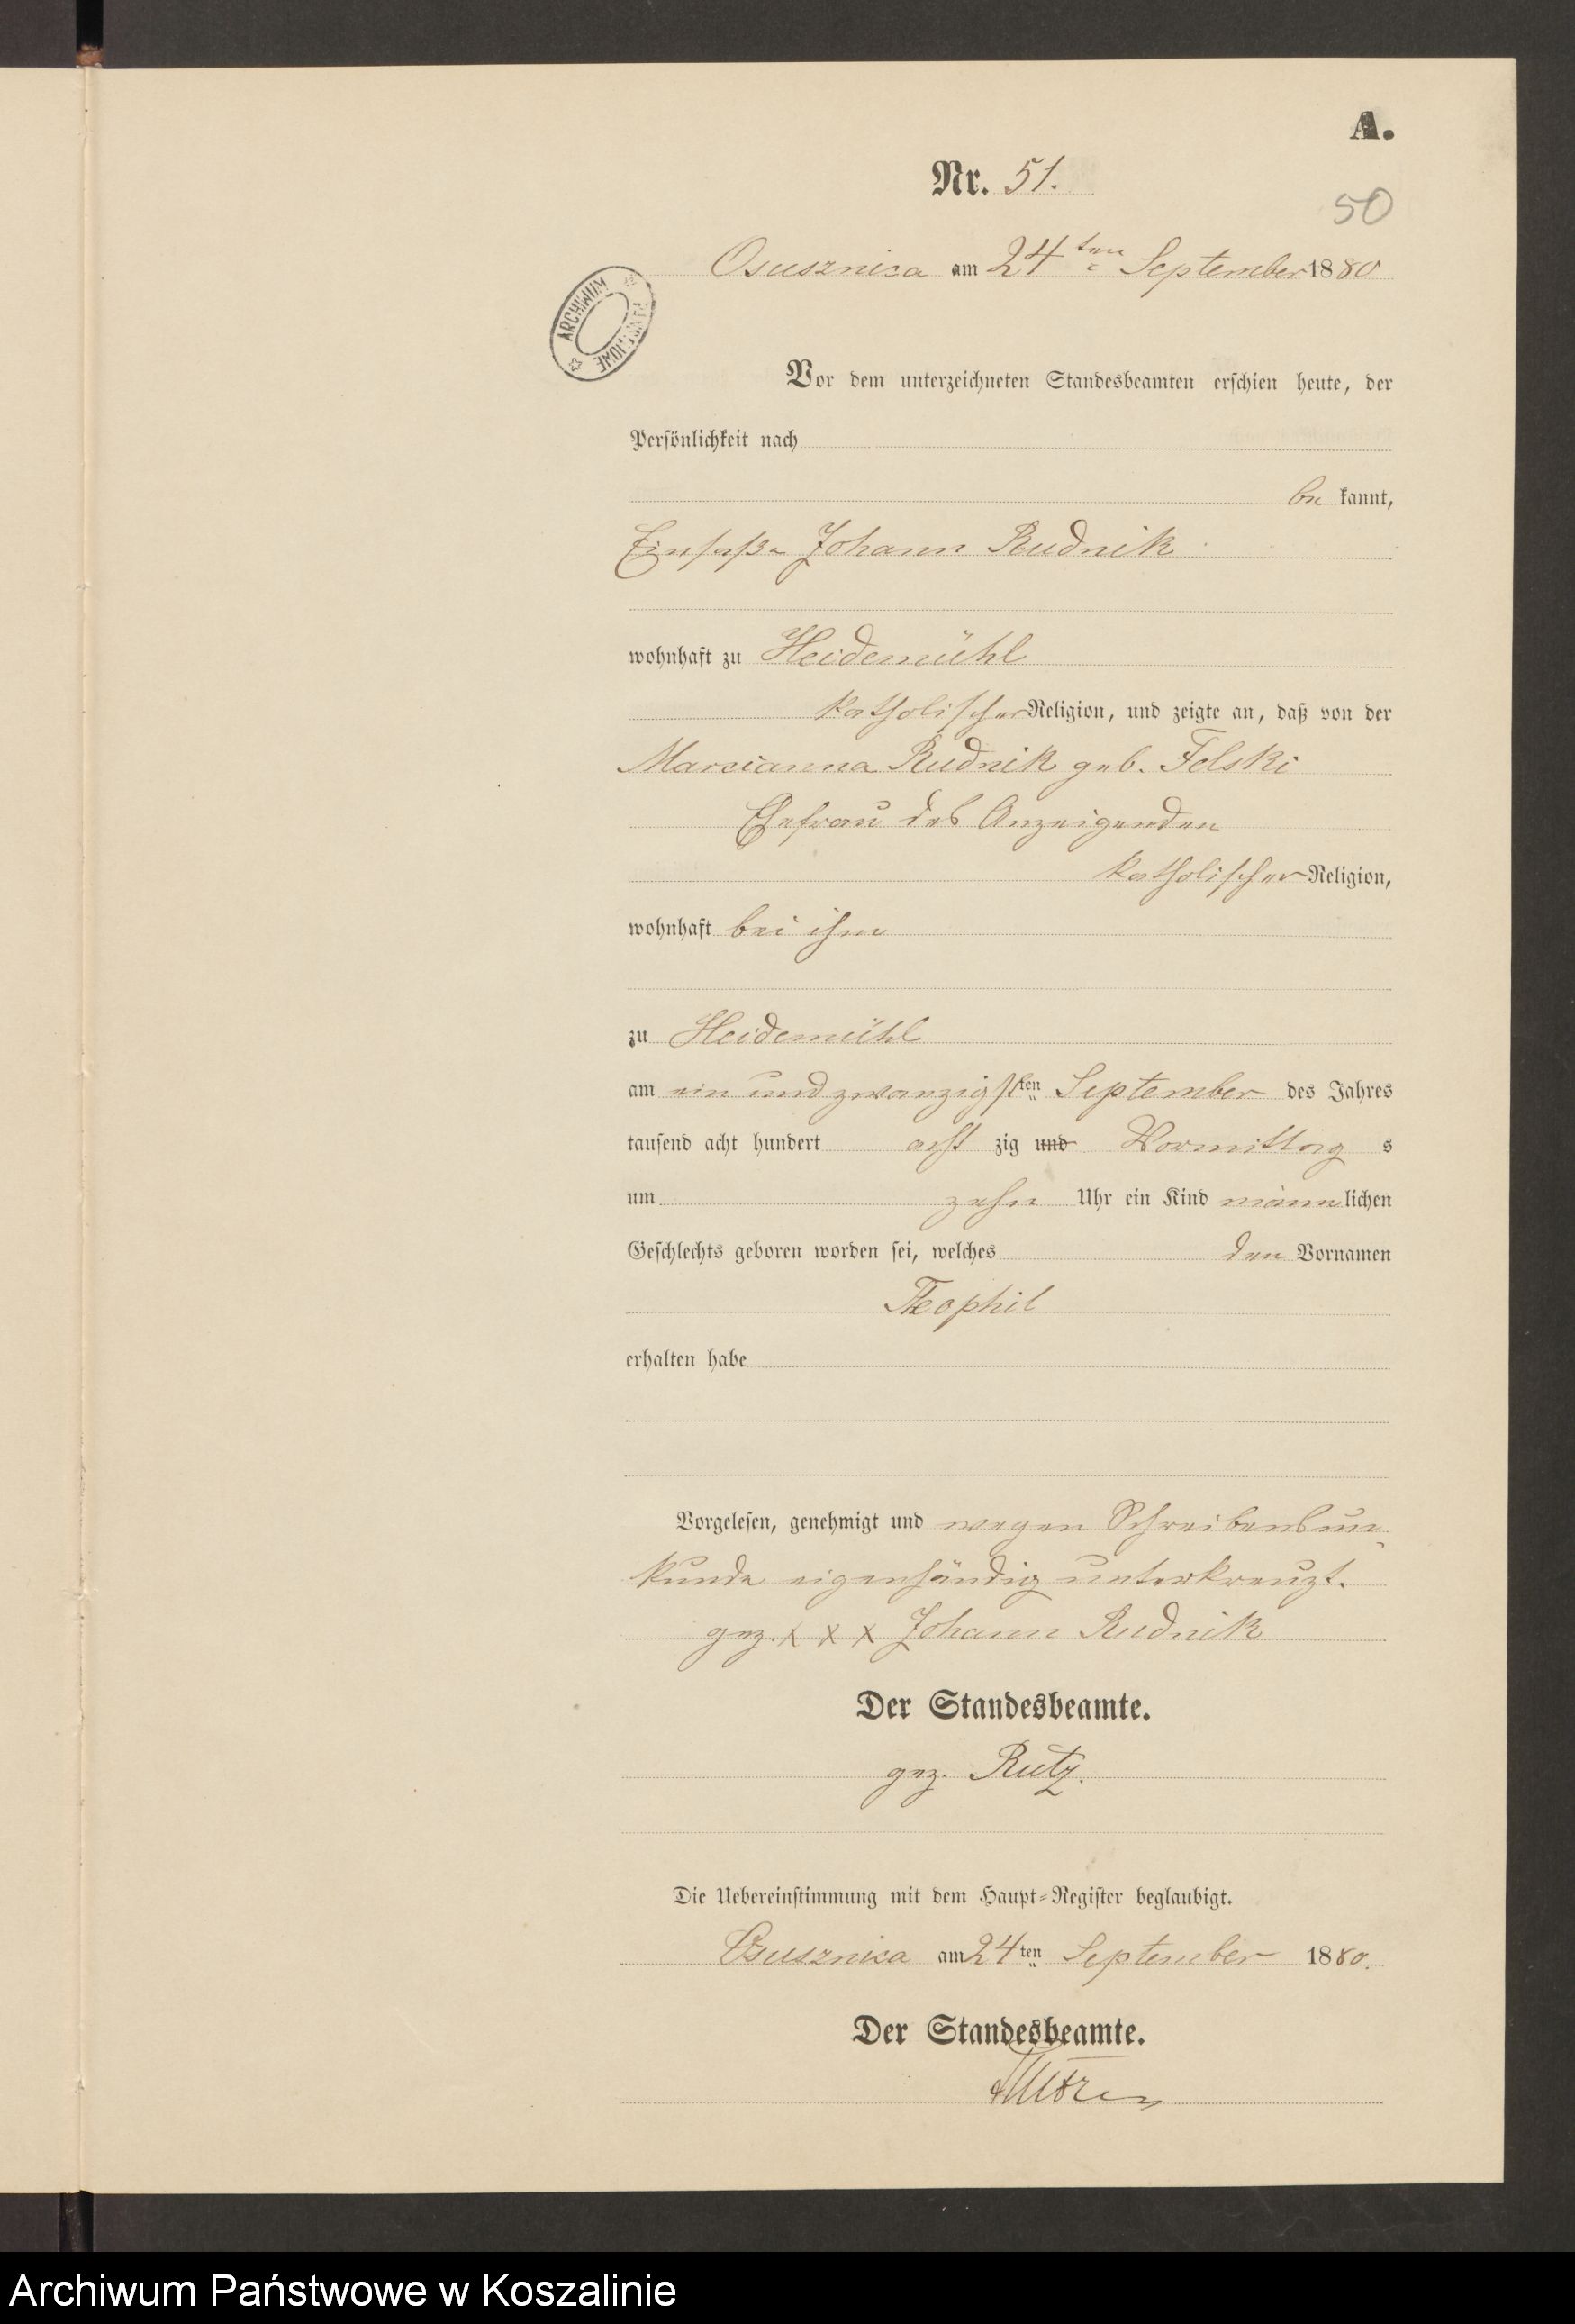 A.
Nr. 51.
50
Osusznica am 24ten September 1880
ARCHIWUM PAŃSTWOWE
Vor dem unterzeichneten Standesbeamten erschien heute, der
Persönlichkeit nach
be kannt,
Einsaße Johann Rudnik
wohnhaft zu Heidemühl
katholischer Religion, und zeigte an, daß von der
Marcianna Rudnik geb. Felski
Ehefrau des Anzeigenden
katholischer Religion,
wohnhaft bei ihm
zu Heidemühl
am ein und zwanzigsten September des Jahres
tausend acht hundert acht zig und Vormittag s
um zehn Uhr ein Kind männlichen
Geschlechts geboren worden sei, welches den Vornamen
Theophil
erhalten habe
Vorgelesen, genehmigt und wegen Schreibensun-
kunde eigenhändig unterkreuzt.
gez. x x x Johann Rudnik
Der Standesbeamte.
gez. Rutz.
Die Uebereinstimmung mit dem Haupt-Register beglaubigt.
Osusznica am 24ten September 1880.
Der Standesbeamte.
Archiwum Państwowe w Koszalinie